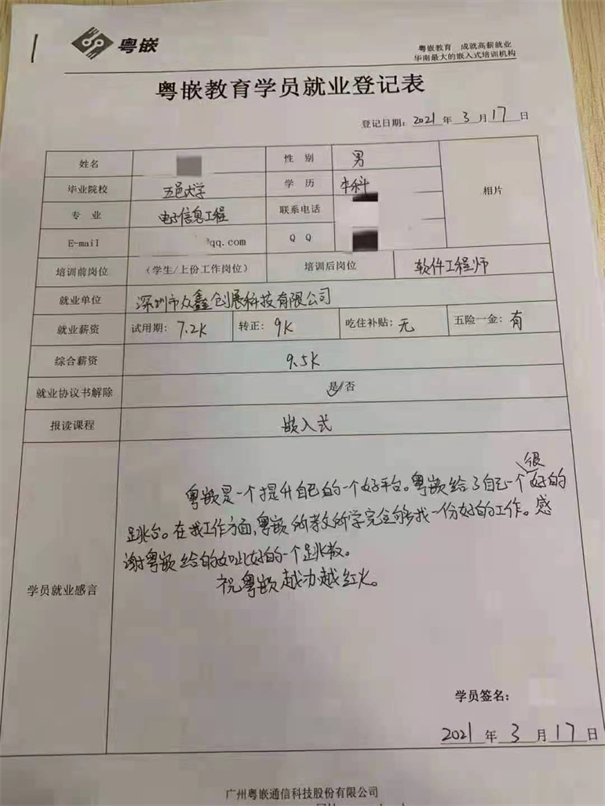 粤嵌
粤嵌教育 成就高薪就业
华南最大的嵌入式培训机构
粤嵌教育学员就业登记表
登记日期: 2021 年 3 月 17 日
姓名 性别 男 相片
毕业院校 五邑大学 学历 本科
专业 电子信息工程 联系电话
E-mail @qq.com QQ
培训前岗位 (学生/上份工作岗位) 培训后岗位 软件工程师
就业单位 深圳市众鑫创展科技有限公司
就业薪资 试用期: 7.2K 转正: 9K 吃住补贴: 无 五险一金: 有
综合薪资 9.5K
就业协议书解除 是/否
报读课程 嵌入式
学员就业感言
粤嵌是一个提升自己的一个好平台。粤嵌给了自己一个很好的
跳台。在找工作方面,粤嵌所教所学完全够找一份好的工作。感
谢粤嵌给的如此好的一个跳板。
祝粤嵌越办越红火。
学员签名:
2021 年 3 月 17 日
广州粤嵌通信科技股份有限公司